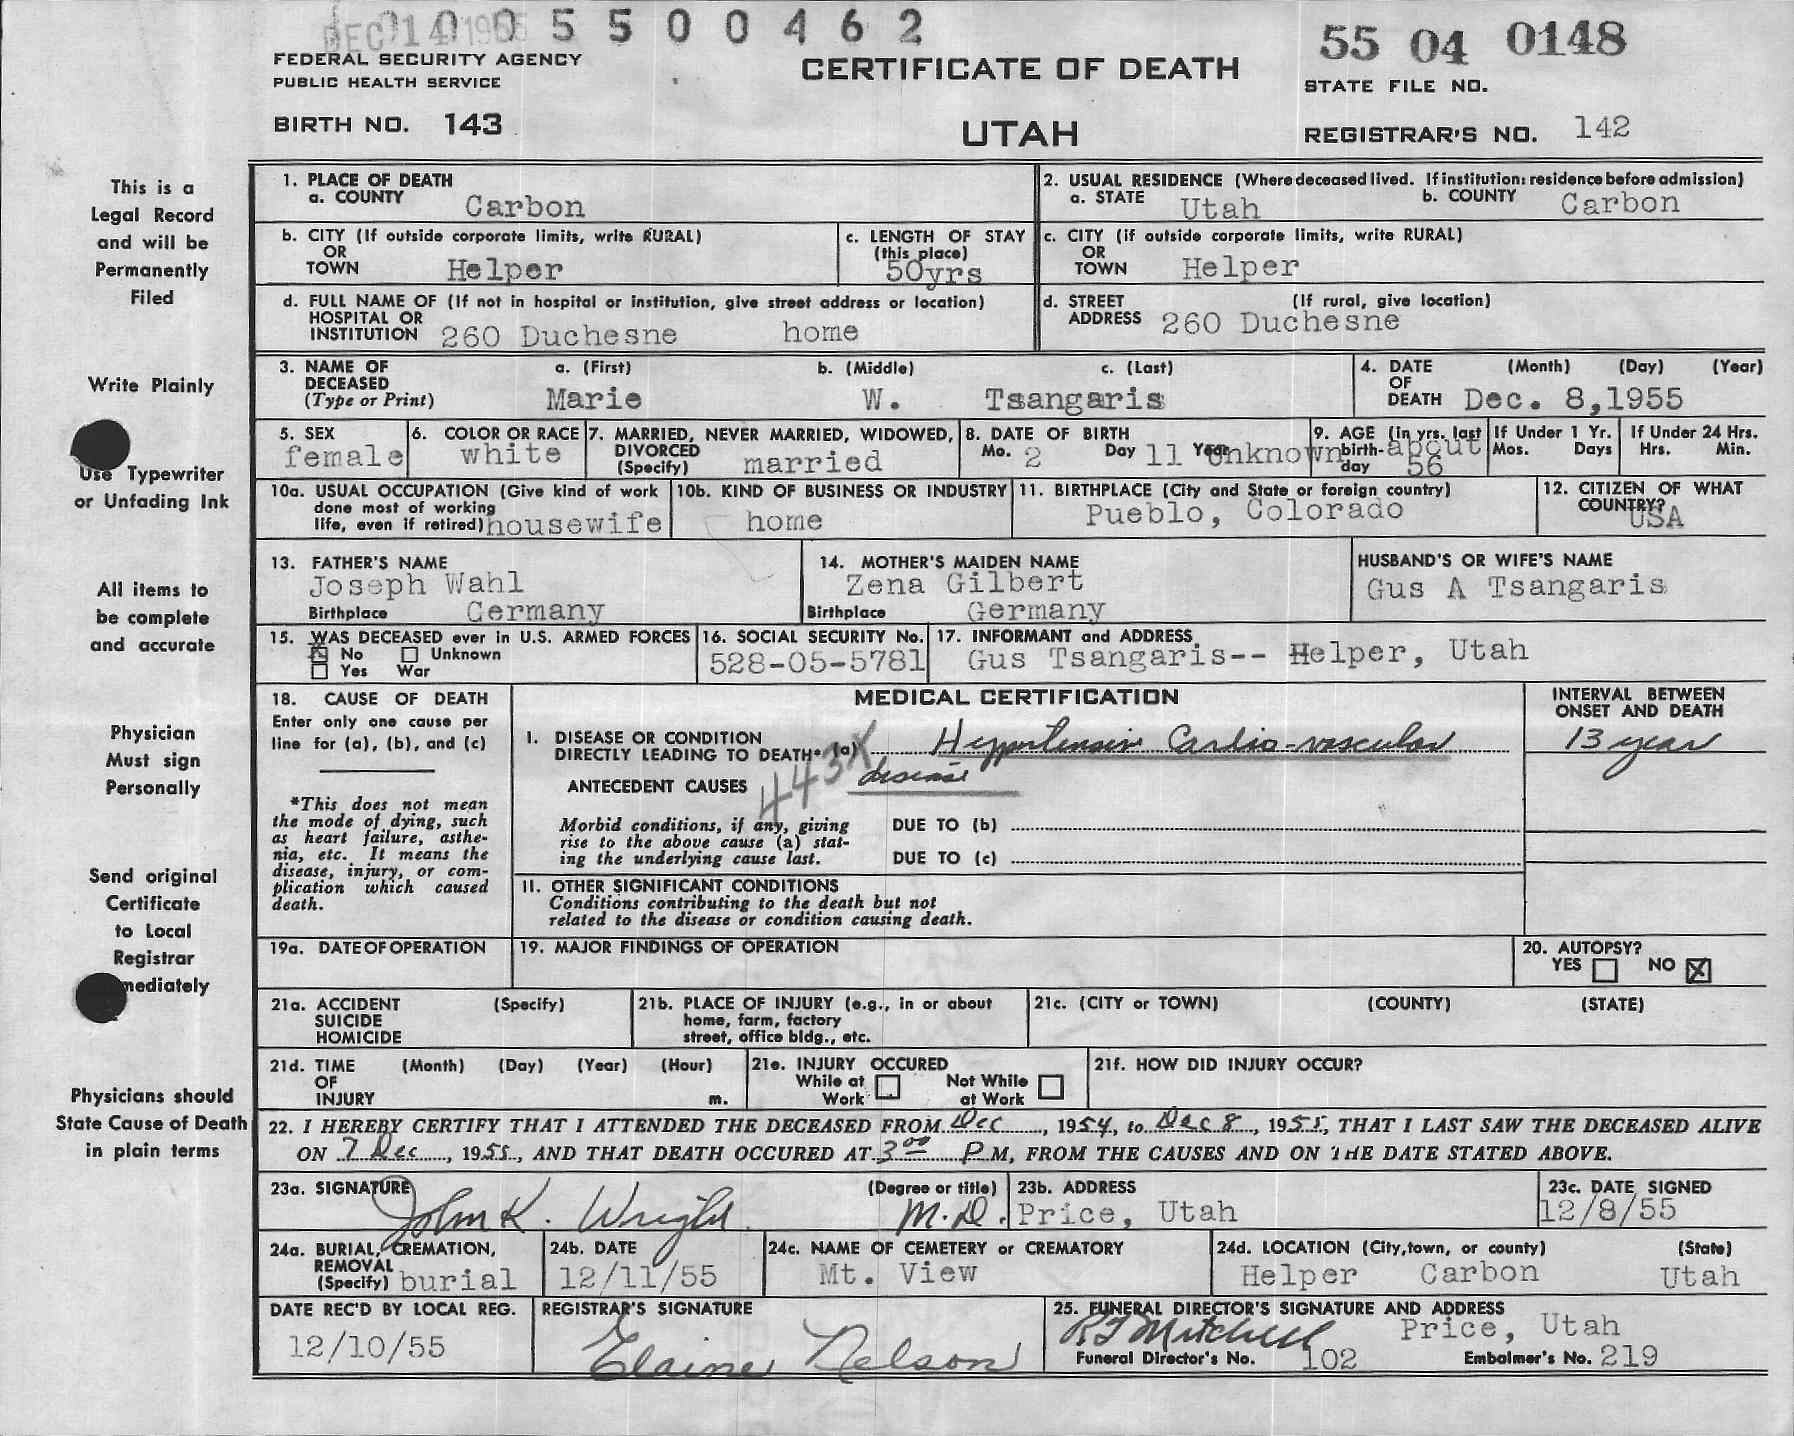 DEC 14 1955
0055 00462
55 04 0148
FEDERAL SECURITY AGENCY
PUBLIC HEALTH SERVICE
CERTIFICATE OF DEATH
STATE FILE NO.
BIRTH NO. 143
UTAH
REGISTRAR'S NO. 142
This is a
Legal Record
and will be
Permanently
Filed
Write Plainly
Use Typewriter
or Unfading Ink
All items to
be complete
and accurate
Physician
Must sign
Personally
Send original
Certificate
to Local
Registrar
mediately
Physicians should
State Cause of Death
in plain terms
1. PLACE OF DEATH
a. COUNTY Carbon
2. USUAL RESIDENCE (Where deceased lived. If institution: residence before admission)
a. STATE Utah b. COUNTY Carbon
b. CITY (If outside corporate limits, write RURAL)
OR
TOWN Helper
c. LENGTH OF STAY
(this place)
50yrs
c. CITY (if outside corporate limits, write RURAL)
OR
TOWN Helper
d. FULL NAME OF (If not in hospital or institution, give street address or location)
HOSPITAL OR
INSTITUTION 260 Duchesne home
d. STREET (If rural, give location)
ADDRESS 260 Duchesne
3. NAME OF a. (First) b. (Middle) c. (Last)
DECEASED
(Type or Print) Marie W. Tsangaris
4. DATE (Month) (Day) (Year)
OF
DEATH Dec. 8,1955
5. SEX
female
6. COLOR OR RACE
white
7. MARRIED, NEVER MARRIED, WIDOWED,
DIVORCED
(Specify) married
8. DATE OF BIRTH
Mo. 2 Day 11 Year Unknown
9. AGE (in yrs. last
birth- about
day 56
If Under 1 Yr.
Mos. Days
If Under 24 Hrs.
Hrs. Min.
10a. USUAL OCCUPATION (Give kind of work
done most of working
life, even if retired) housewife
10b. KIND OF BUSINESS OR INDUSTRY
home
11. BIRTHPLACE (City and State or foreign country)
Pueblo, Colorado
12. CITIZEN OF WHAT
COUNTRY?
USA
13. FATHER'S NAME
Joseph Wahl
Birthplace Germany
14. MOTHER'S MAIDEN NAME
Zena Gilbert
Birthplace Germany
HUSBAND'S OR WIFE'S NAME
Gus A Tsangaris
15. WAS DECEASED ever in U.S. ARMED FORCES
No Unknown
Yes War
16. SOCIAL SECURITY No.
528-05-5781
17. INFORMANT and ADDRESS
Gus Tsangaris-- Helper, Utah
18. CAUSE OF DEATH
Enter only one cause per
line for (a), (b), and (c)
*This does not mean
the mode of dying, such
as heart failure, asthe-
nia, etc. It means the
disease, injury, or com-
plication which caused
death.
MEDICAL CERTIFICATION
INTERVAL BETWEEN
ONSET AND DEATH
I. DISEASE OR CONDITION
DIRECTLY LEADING TO DEATH* (a) Hypertensive Cardio-vascular
13 year
disease
443X
ANTECEDENT CAUSES
Morbid conditions, if any, giving
rise to the above cause (a) stat-
ing the underlying cause last.
DUE TO (b)
DUE TO (c)
II. OTHER SIGNIFICANT CONDITIONS
Conditions contributing to the death but not
related to the disease or condition causing death.
19a. DATE OF OPERATION
19. MAJOR FINDINGS OF OPERATION
20. AUTOPSY?
YES NO
21a. ACCIDENT (Specify)
SUICIDE
HOMICIDE
21b. PLACE OF INJURY (e.g., in or about
home, farm, factory
street, office bldg., etc.
21c. (CITY or TOWN) (COUNTY) (STATE)
21d. TIME (Month) (Day) (Year) (Hour)
OF
INJURY m.
21e. INJURY OCCURED
While at Work
Not While at Work
21f. HOW DID INJURY OCCUR?
22. I HEREBY CERTIFY THAT I ATTENDED THE DECEASED FROM Dec, 1954, to Dec 8, 1955, THAT I LAST SAW THE DECEASED ALIVE
ON 7 Dec, 1955, AND THAT DEATH OCCURED AT 3 00 P M, FROM THE CAUSES AND ON THE DATE STATED ABOVE.
23a. SIGNATURE (Degree or title)
John K. Wright M.D.
23b. ADDRESS
Price, Utah
23c. DATE SIGNED
12/8/55
24a. BURIAL, CREMATION,
REMOVAL
(Specify) burial
24b. DATE
12/11/55
24c. NAME OF CEMETERY or CREMATORY
Mt. View
24d. LOCATION (City, town, or county) (State)
Helper Carbon Utah
DATE REC'D BY LOCAL REG.
12/10/55
REGISTRAR'S SIGNATURE
Elaine Nelson
25. FUNERAL DIRECTOR'S SIGNATURE AND ADDRESS
R J Mitchell Price, Utah
Funeral Director's No. 102 Embalmer's No. 219